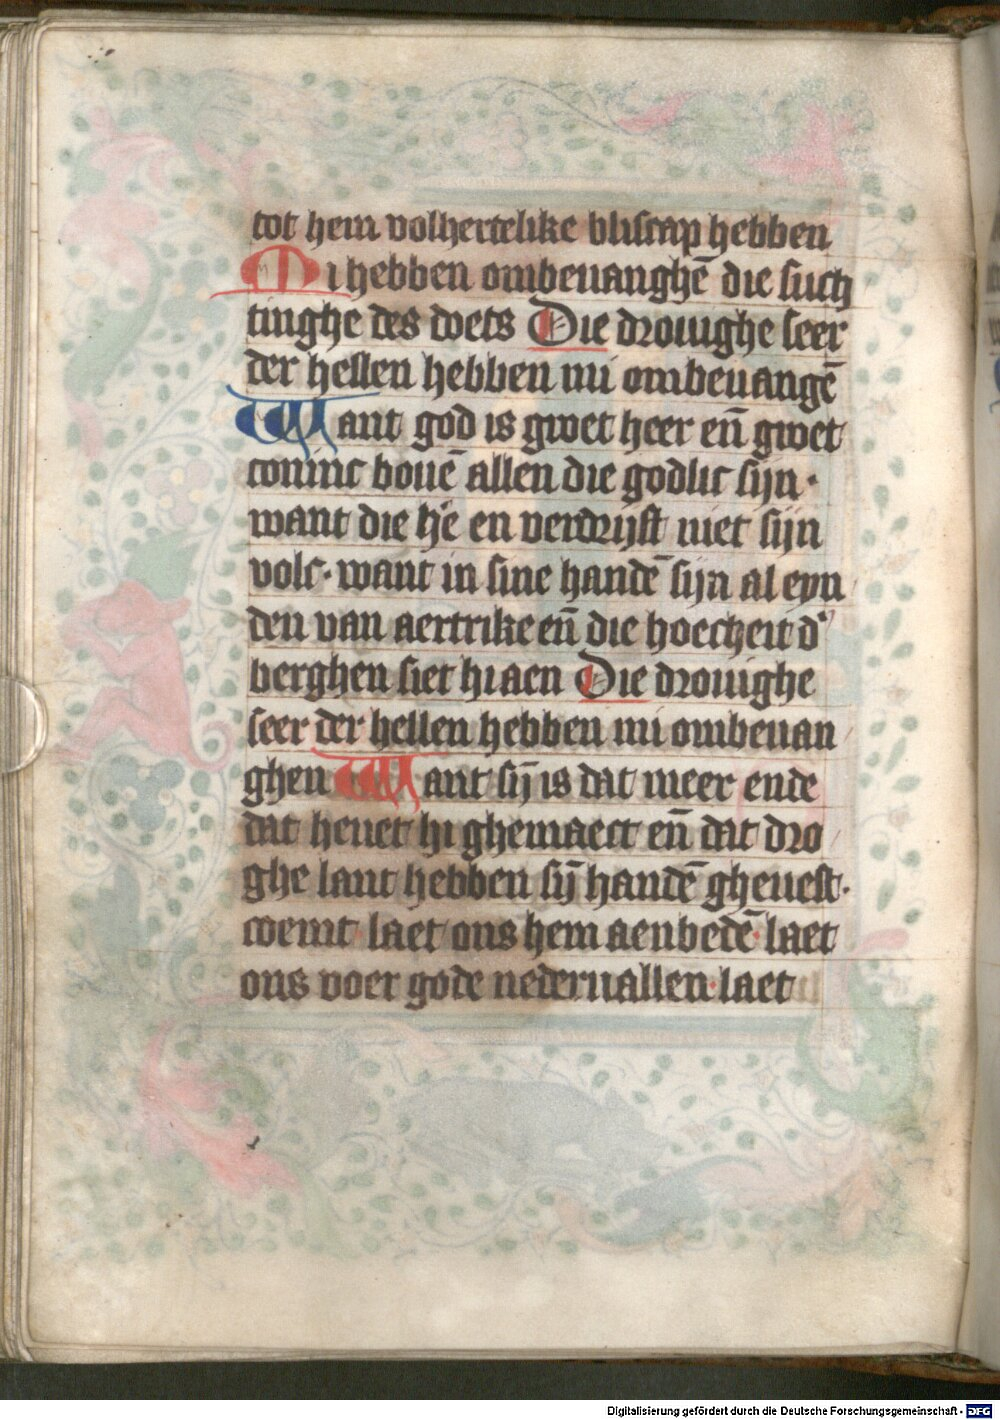 tot hem volhertelike bliscap hebben
Mi hebben ombeuanghē die such
tinghe des doets Die drouighe seer
der hellen hebben mi ombeuangē
Want god is groet heer eñ groet
coninc bouē allen die godlic sijn·
want die h'e en verdrijft niet sijn
volc·want in sine handē sijn al eyn
den van aertrike eñ die hoecheit d'
berghen siet hi aen Die drouighe
seer der hellen hebben mi ombeuan
ghen Want sȳ is dat meer ende
dat heuet hi ghemaect eñ dat dro
ghe lant hebben sȳ handē gheuest·
coemt·laet ons hem aenbedē·laet
ons voer gode nederuallen·laet
Digitalisierung gefördert durch die Deutsche Forschungsgemeinschaft - DFG